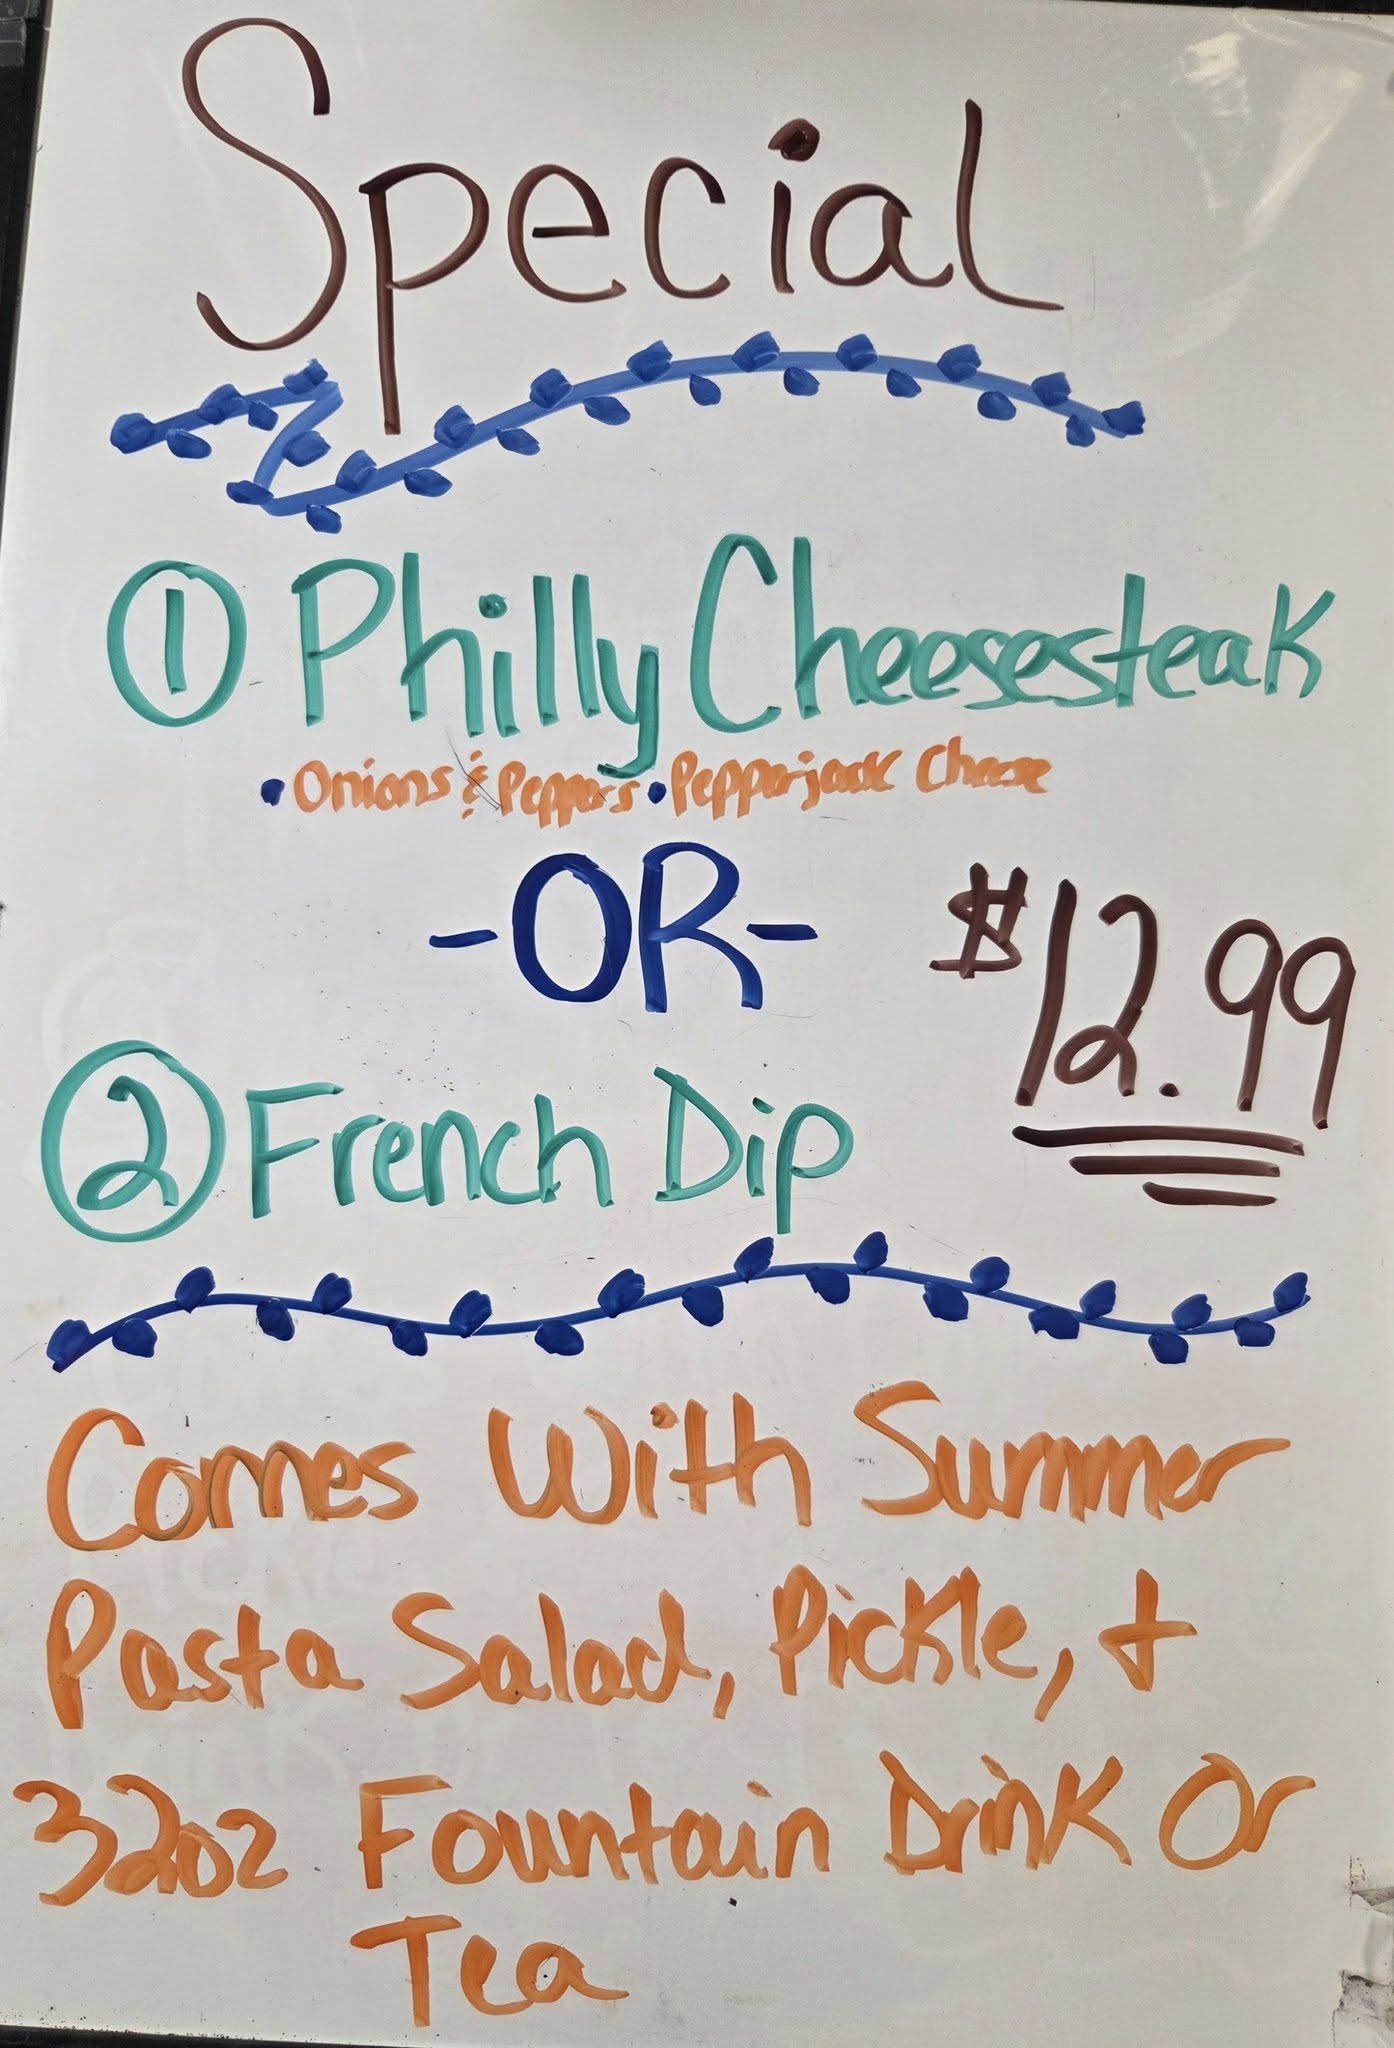 Special
① Philly Cheesesteak
• Onions & Peppers • Pepperjack Cheese
-OR-
$12.99
② French Dip
Comes With Summer
Pasta Salad, Pickle, +
32oz Fountain Drink Or
Tea